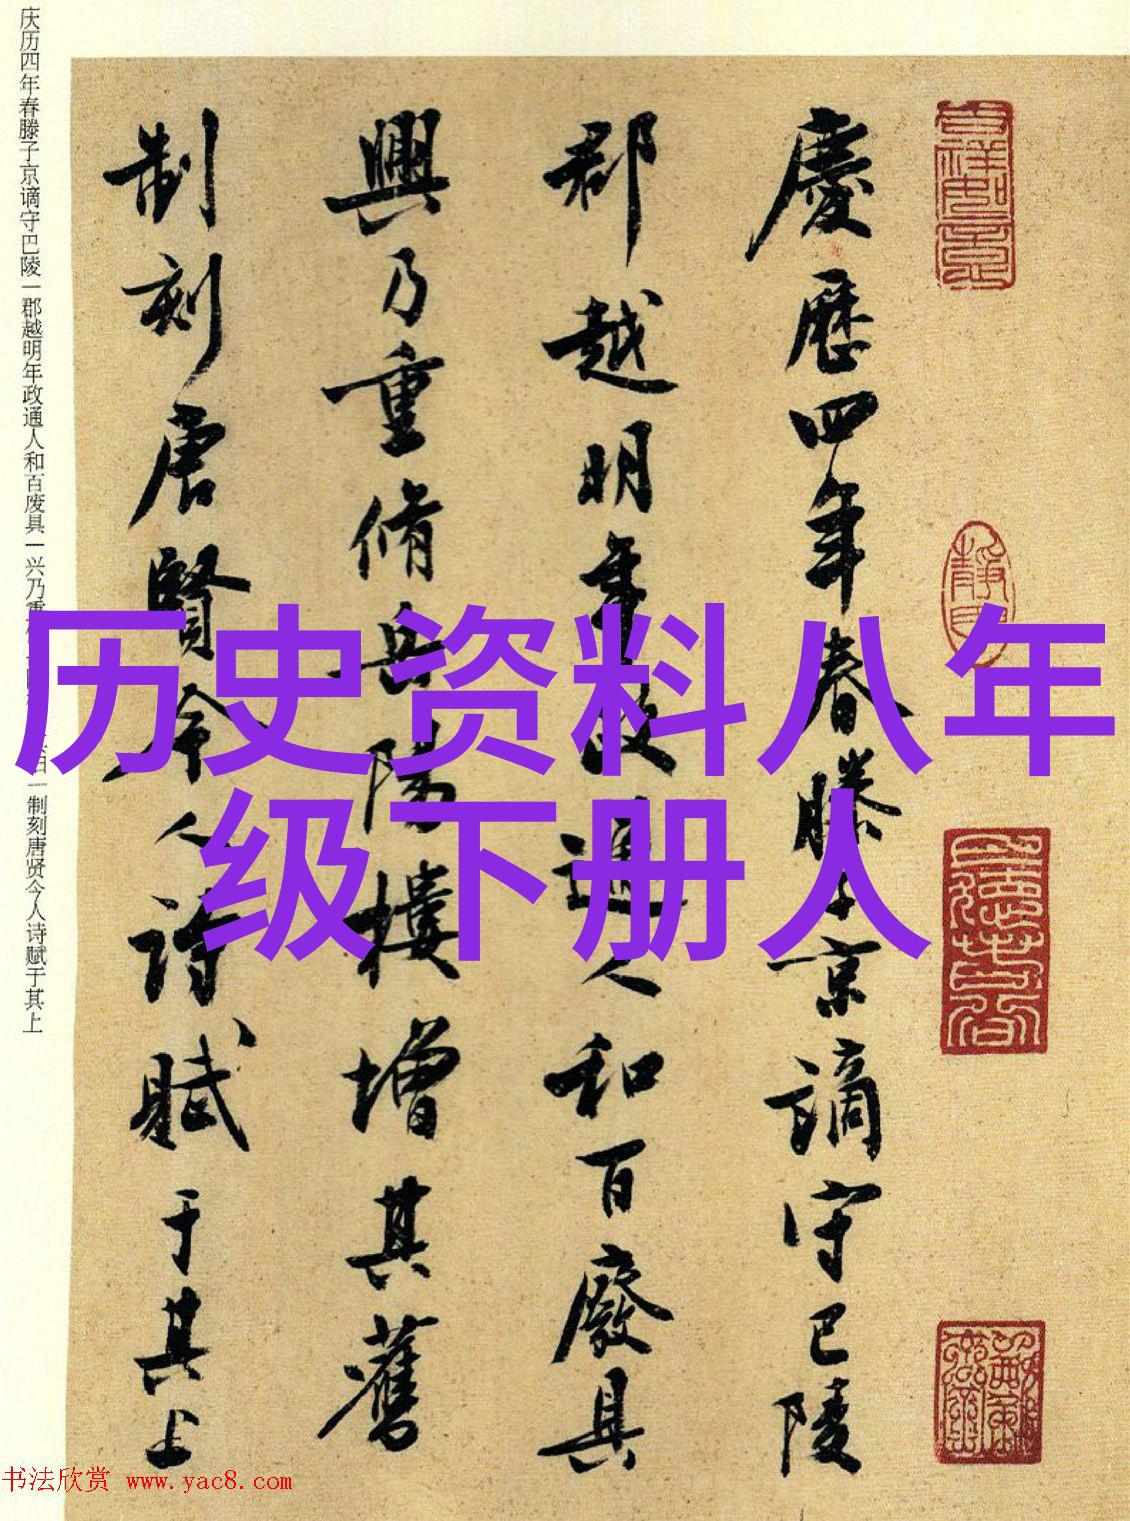 慶歷四年春滕子京謫守巴陵
郡越明年政通人和百廢具
興乃重脩岳陽樓增其舊
制刻唐賢今人詩賦于其上
庆历四年春滕子京谪守巴陵一郡越明年政通人和百废具一兴乃重
一制刻唐贤今人诗赋于其上
历史资料八年
级下册人
书法欣赏 www.yac8.com